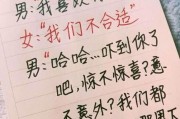 男:我喜欢
女:“我们不合适”
男:“哈哈…吓到你了
吧,惊不惊喜?意
不意外?我们都